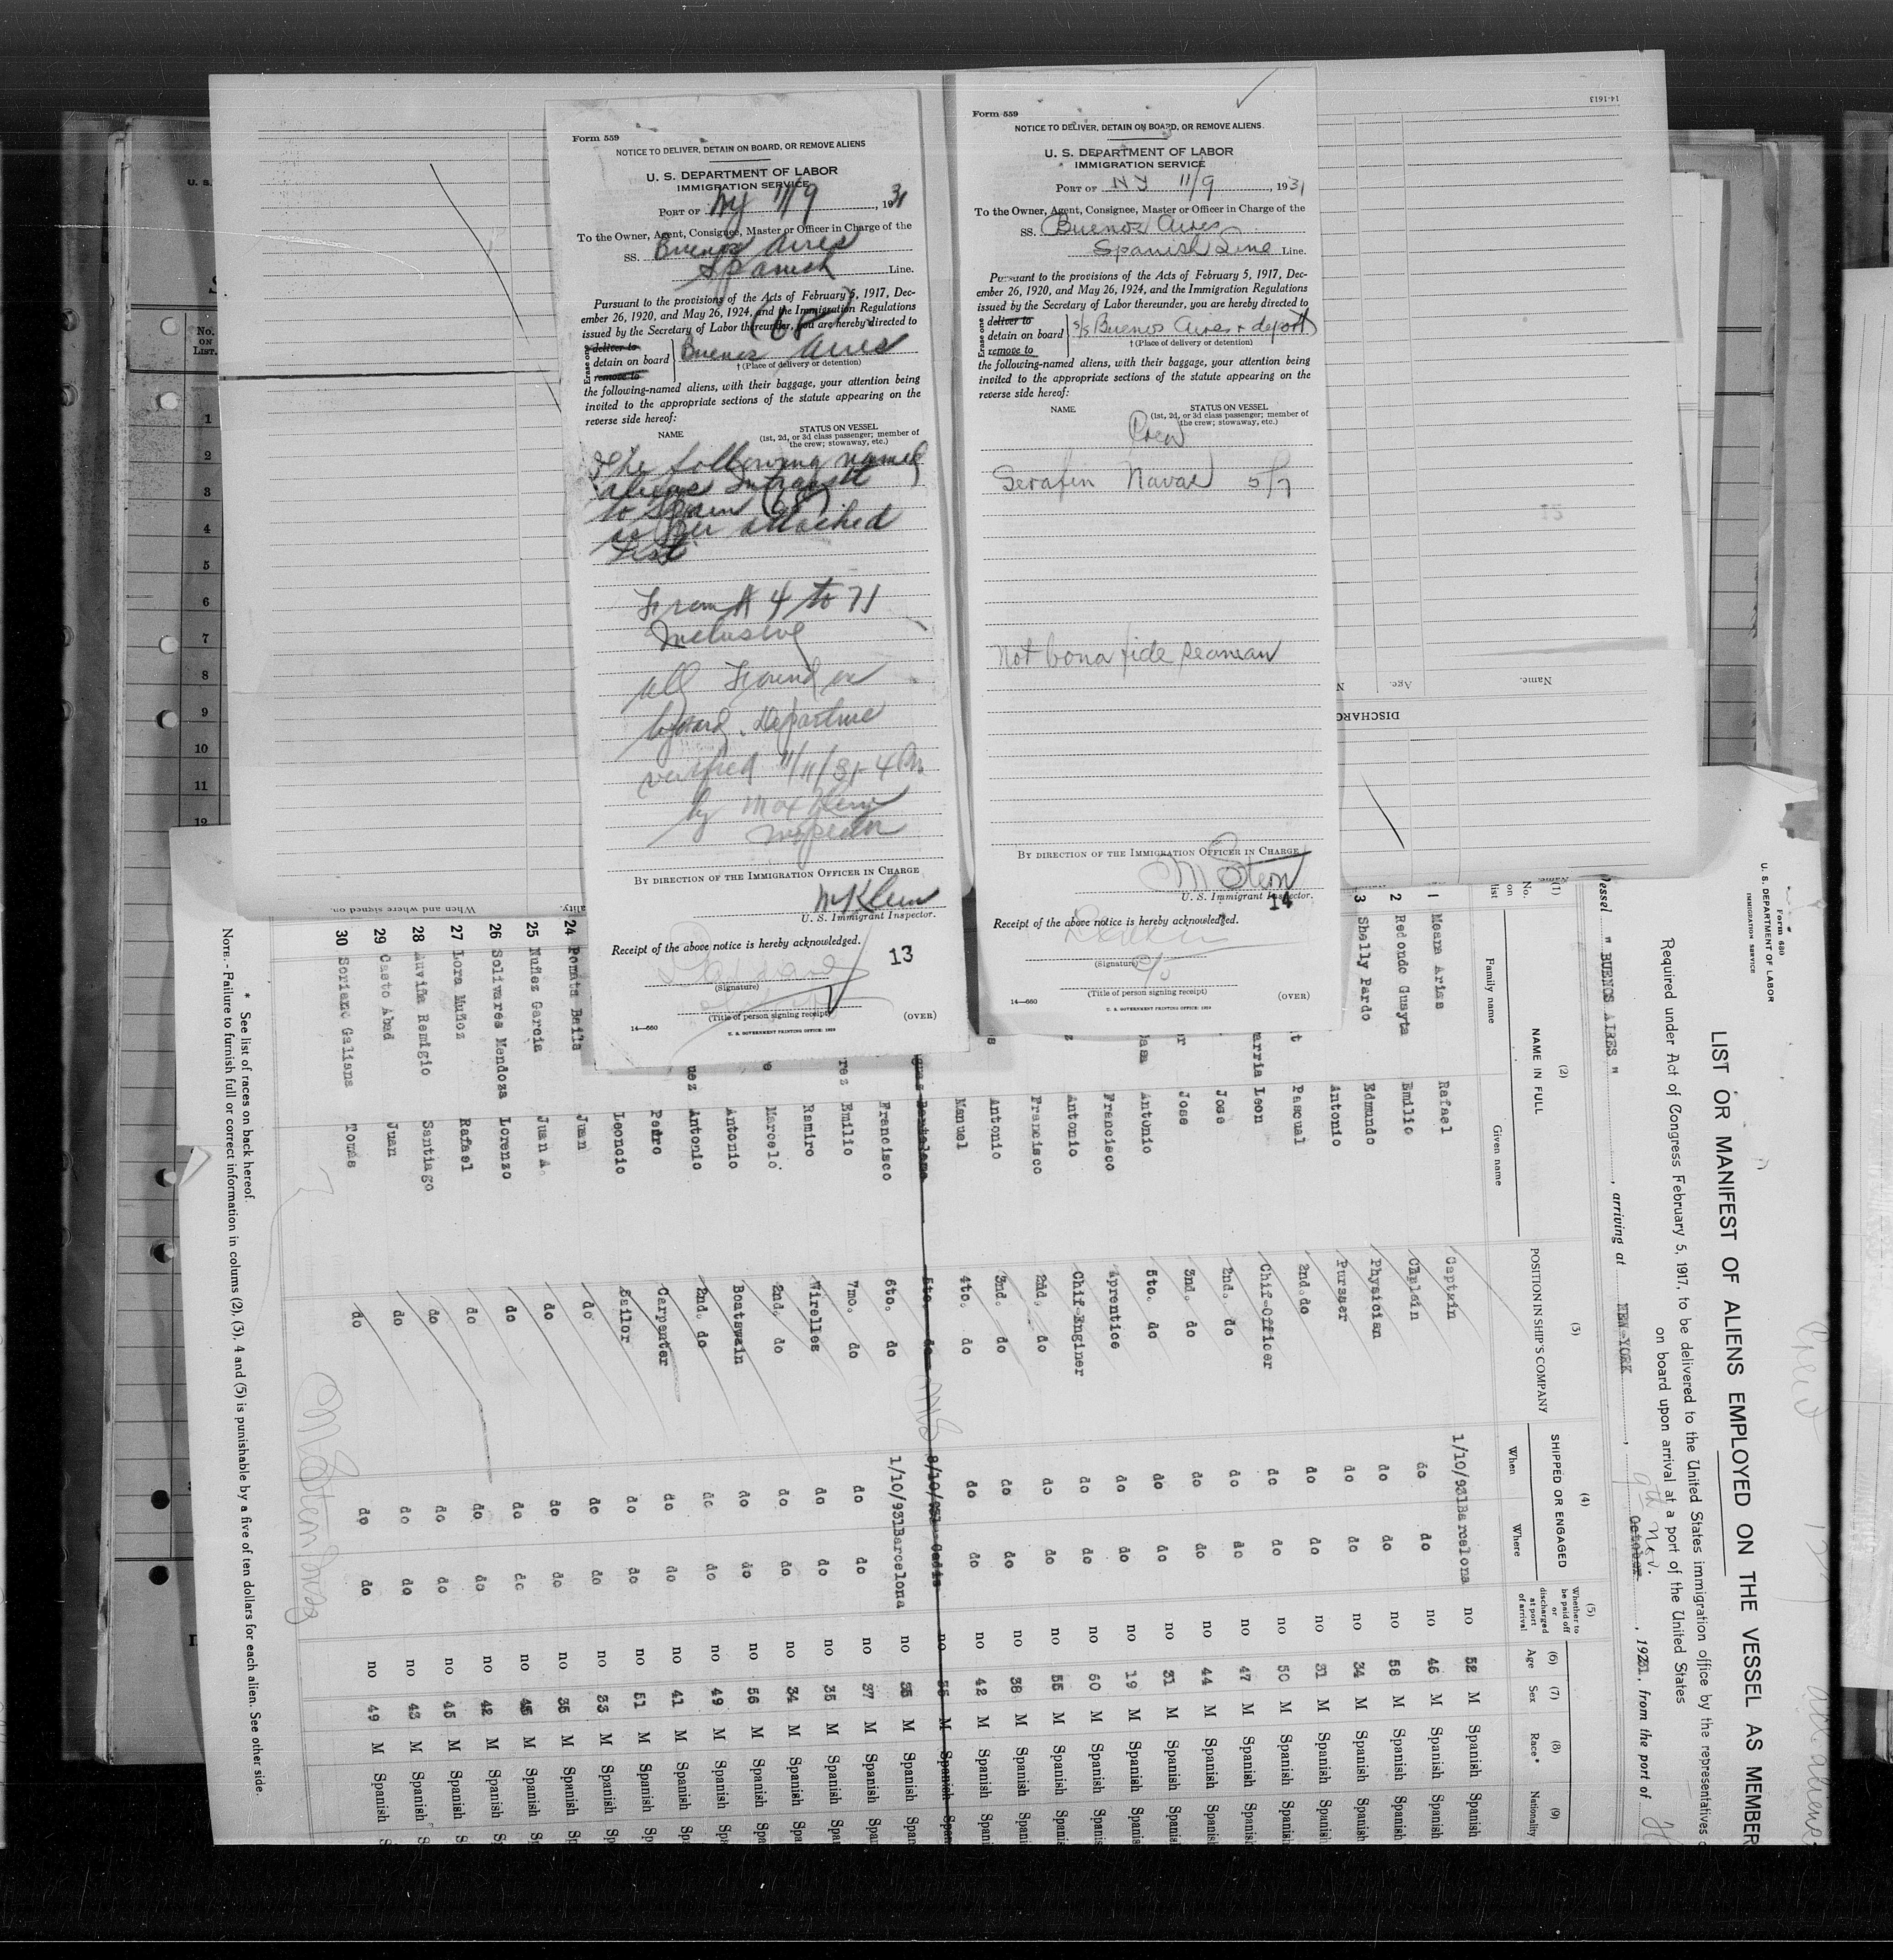 Form 559
NOTICE TO DELIVER, DETAIN ON BOARD, OR REMOVE ALIENS
U. S. DEPARTMENT OF LABOR
IMMIGRATION SERVICE
PORT OF NY 11/9, 1931
To the Owner, Agent, Consignee, Master or Officer in Charge of the
SS. Buenos Aires
Spanish Line.
Pursuant to the provisions of the Acts of February 5, 1917, Dec-
ember 26, 1920, and May 26, 1924, and the Immigration Regulations
issued by the Secretary of Labor thereunder, you are hereby directed to
(68)
Erase one
deliver to
detain on board Buenos Aires
remove to
† (Place of delivery or detention)
the following-named aliens, with their baggage, your attention being
invited to the appropriate sections of the statute appearing on the
reverse side hereof:
NAME STATUS ON VESSEL
(1st, 2d, or 3d class passenger; member of
the crew; stowaway, etc.)
The following named
aliens Intransit
to Spain (68)
as per attached
List
From # 4 to 71
Inclusive
all Found on
board. Departure
verified 11/11/31
by Max Klein
Inspector
BY DIRECTION OF THE IMMIGRATION OFFICER IN CHARGE
M Klein
U. S. Immigrant Inspector.
Receipt of the above notice is hereby acknowledged.
13
(Signature)
(Title of person signing receipt)
14—660
(OVER)
U. S. GOVERNMENT PRINTING OFFICE: 1929
Form 559
NOTICE TO DELIVER, DETAIN ON BOARD, OR REMOVE ALIENS.
U. S. DEPARTMENT OF LABOR
IMMIGRATION SERVICE
PORT OF NY 11/9, 1931
To the Owner, Agent, Consignee, Master or Officer in Charge of the
SS. Buenos Aires
Spanish Line Line.
Pursuant to the provisions of the Acts of February 5, 1917, Dec-
ember 26, 1920, and May 26, 1924, and the Immigration Regulations
issued by the Secretary of Labor thereunder, you are hereby directed to
Erase one
deliver to
detain on board s/s Buenos Aires + deport
remove to
† (Place of delivery or detention)
the following-named aliens, with their baggage, your attention being
invited to the appropriate sections of the statute appearing on the
reverse side hereof:
NAME STATUS ON VESSEL
(1st, 2d, or 3d class passenger; member of
the crew; stowaway, etc.)
Crew
Serafin Naval 5/7
Not bona fide seaman
BY DIRECTION OF THE IMMIGRATION OFFICER IN CHARGE
M Stern
U. S. Immigrant Inspector.
14
Receipt of the above notice is hereby acknowledged.
(Signature)
(Title of person signing receipt)
14—660
(OVER)
U. S. GOVERNMENT PRINTING OFFICE: 1929
14-1613
Name.
Age.
DISCHARG
When and where signed on.
U. S.
No.
ON
LIST.
1
2
3
4
5
6
7
8
9
10
11
12
Form 680
U. S. DEPARTMENT OF LABOR
IMMIGRATION SERVICE
LIST OR MANIFEST OF ALIENS EMPLOYED ON THE VESSEL AS MEMBER
Required under Act of Congress February 5, 1917, to be delivered to the United States immigration office by the representatives
on board upon arrival at a port of the United States
" BUENOS AIRES ", arriving at NEW-YORK, 9th Nov. October, 1931, from the port of
(1) No. on list
(2) NAME IN FULL Family name Given name
(3) POSITION IN SHIP'S COMPANY
(4) SHIPPED OR ENGAGED When Where
(5) Whether to be paid off or discharged at port of arrival
(6) Age
(7) Sex
(8) Race*
(9) Nationality
1 Meara Arias Rafael Captain 1/10/931 Barcelona no 52 M Spanish
2 Redondo Gusyta Emilio Chplain do do no 46 M Spanish
3 Shelly Pardo Edmundo Physician do do no 58 M Spanish
Antonio Pursser do do no 34 M Spanish
Pascual 2nd. do do do no 31 M Spanish
arria Leon Chif-Officer do do no 50 M Spanish
José 2nd. do do do no 47 M Spanish
Jose 3nd. do do do no 44 M Spanish
Antonio 5to. do do do no 31 M Spanish
Francisco Aprentice do do no 19 M Spanish
Antonio Chif-Enginer do do no 60 M Spanish
Francisco 2nd. do do do no 55 M Spanish
Antonio 3nd. do do do no 38 M Spanish
Manuel 4to. do do do no 42 M Spanish
Bartolome 5to. do 8/10/931 Cadiz no M Spanish
Francisco 6to. do 1/10/931 Barcelona no 35 M Spanish
rez Emilio 7mo. do do do no 37 M Spanish
Ramiro Wirelles do do no 35 M Spanish
Marcelo 2nd. do do do no 34 M Spanish
Antonio Boatswain do do no 56 M Spanish
uez Antonio 2nd. do do do no 49 M Spanish
Pedro Carpenter do do no 41 M Spanish
Leoncio Sailor do do no 51 M Spanish
24 Pomata Baile Juan do do do no 33 M Spanish
25 Nuñez Garcia Juan A. do do do no 35 M Spanish
26 Solivares Mendoza Lorenzo do do do no 45 M Spanish
27 Lora Muñoz Rafael do do do no 42 M Spanish
28 Auviña Remigio Santiago do do do no 45 M Spanish
29 Casto Abad Juan do do do no 43 M Spanish
30 Soriano Galiana Tomás do do do no 49 M Spanish
* See list of races on back hereof.
NOTE.-Failure to furnish full or correct information in colums (2), (3), 4 and (5) is punishable by a five of ten dollars for each alien. See other side.